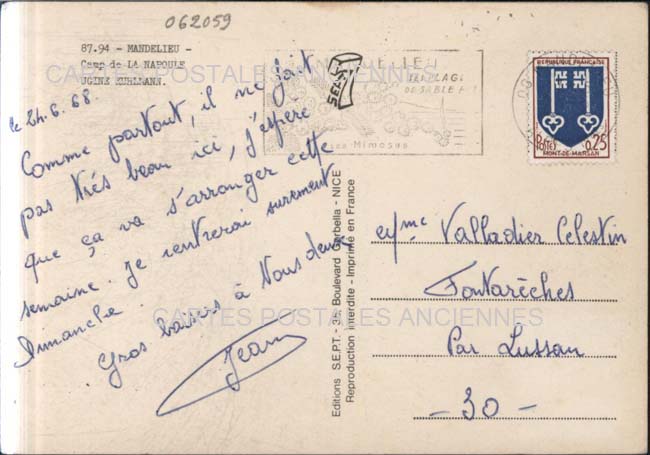 062059
87.94 - MANDELIEU -
Camp de LA NAPOULE
UGINE KUHLMANN.
CARTES POSTALES ANCIENNES
le 24.6.68
Comme partout, il ne fait
pas trés beau ici, j'éspère
que ça va s'arranger cette
semaine. Je rentrerai surement
Dimanche.
Gros baisers à Vous deux
Jean
ELIEU
PLAGE
DE SABLE F
Les Mimosas
REPUBLIQUE FRANÇAISE
POSTES 0,25
MONT-DE-MARSAN
Editions S.E.P.T. - Boulevard Gerbella - NICE
Reproduction interdite - Imprimé en France
Mme Valladier Celestin
Fontarèches
Par Lussan
- 30 -
CARTES POSTALES ANCIENNES